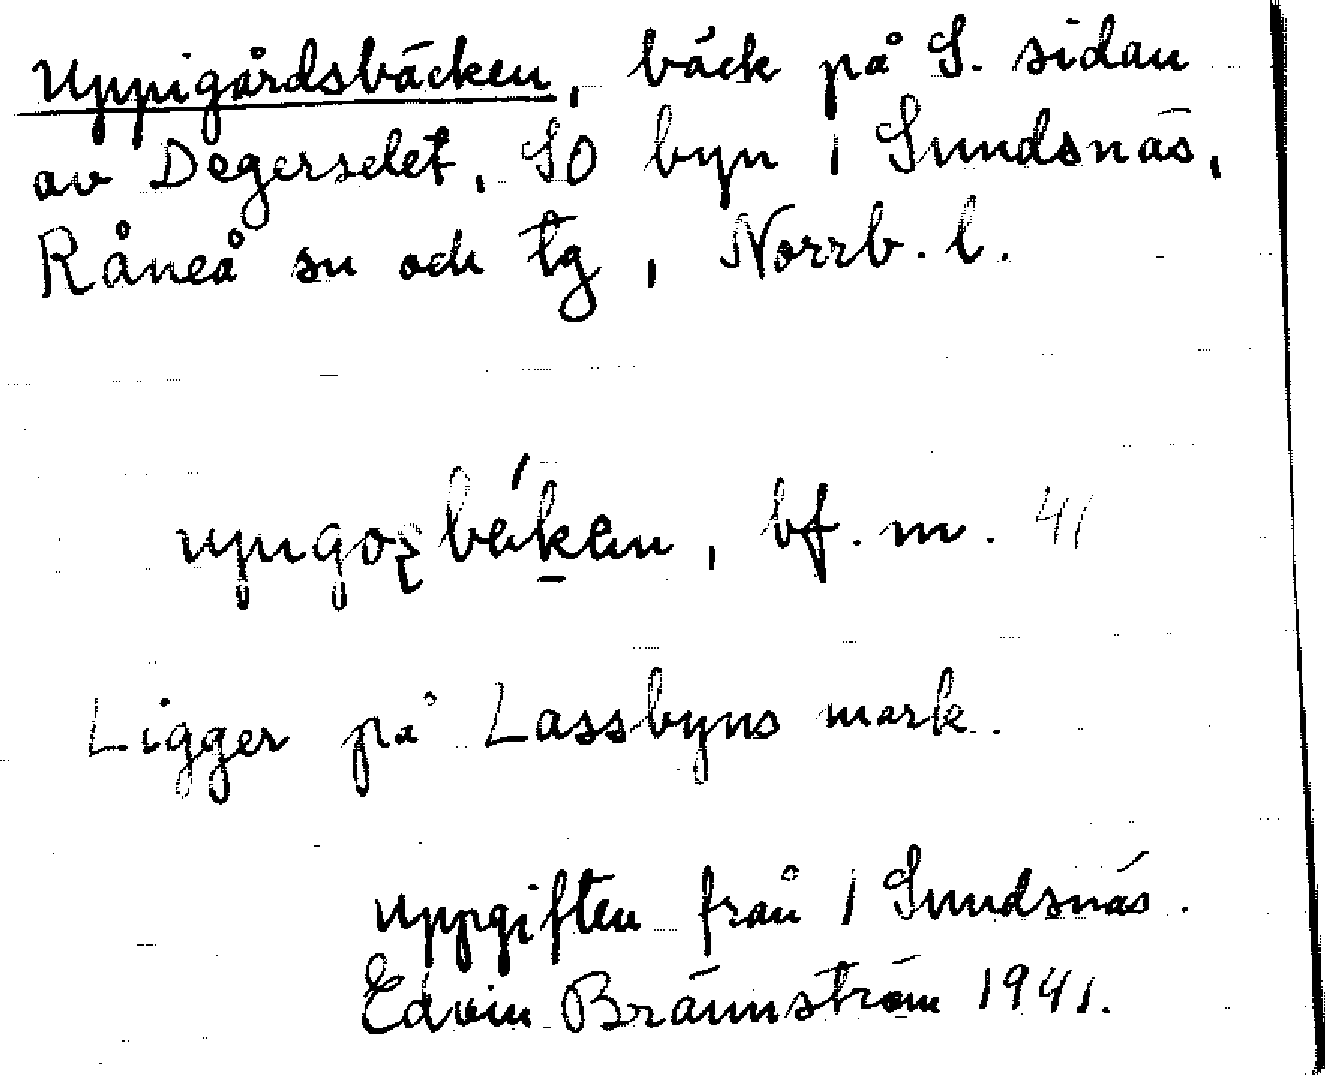 Uppigårdsbäcken, bäck på S. sidan
av Degerselet, SO byn 1 Sundsnäs,
Råneå sn och tg, Norrb. l.
bf. m. 41
Ligger på Lassbyns mark.
Uppgiften från 1 Sundsnäs.
Edvin Brännström 1941.